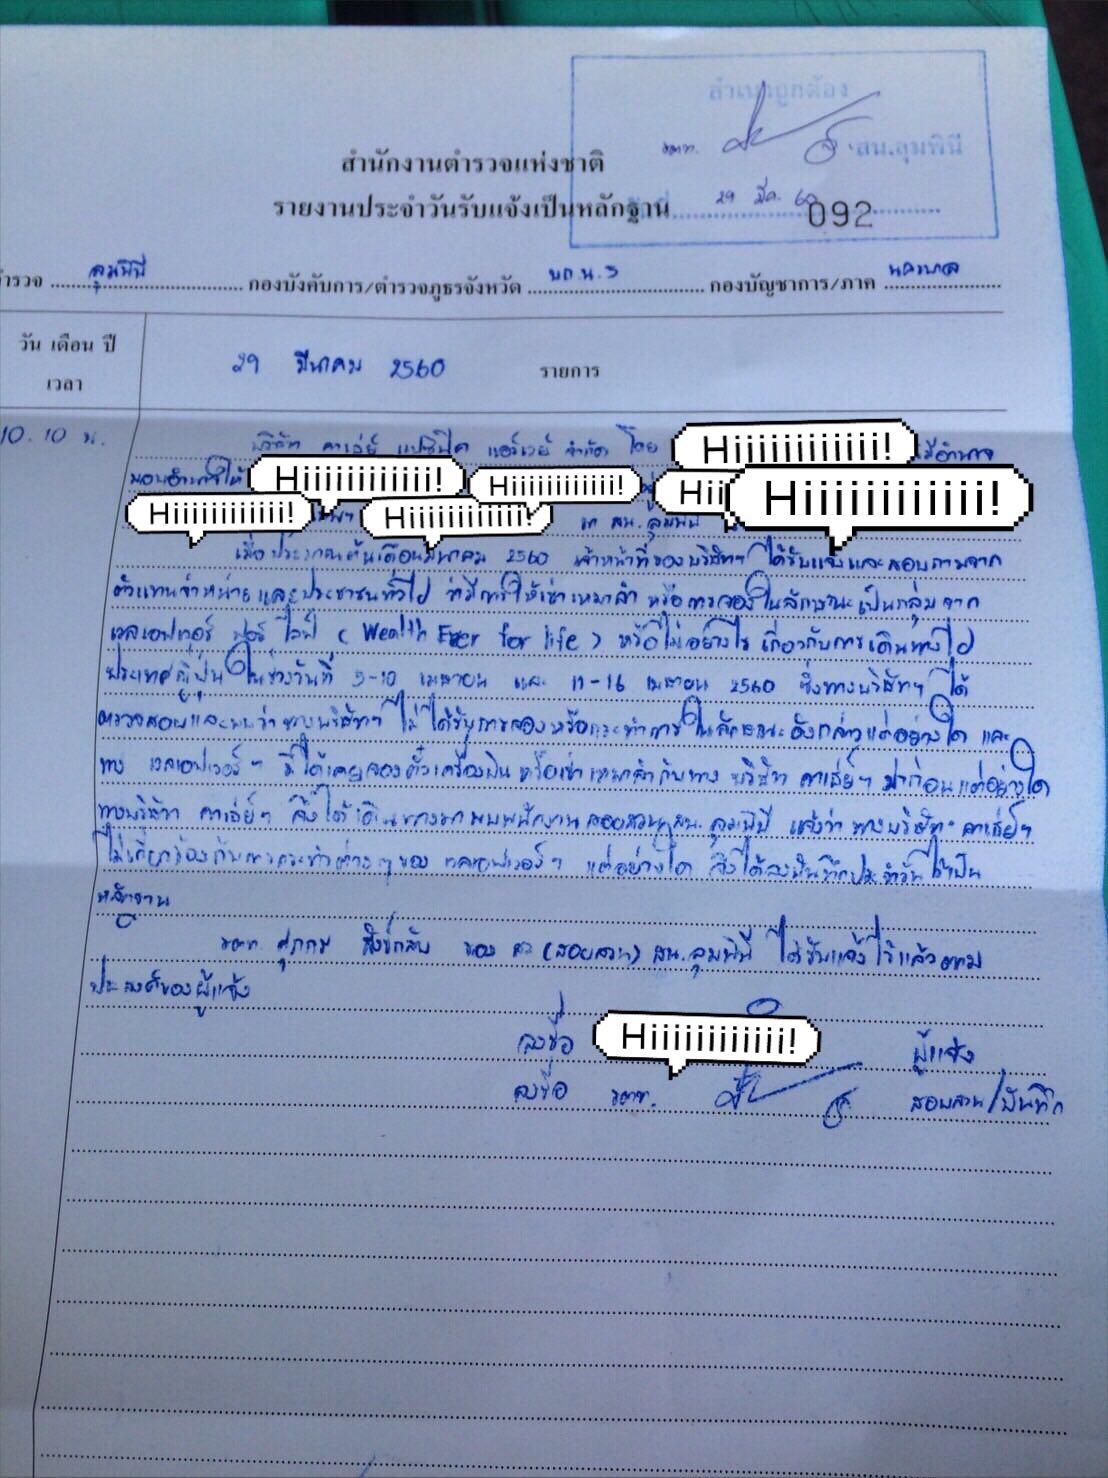 สำเนาถูกต้อง
สน.ลุมพินี
29 มีค. 60
092
สำนักงานตำรวจแห่งชาติ
รายงานประจำวันรับแจ้งเป็นหลักฐาน
ตำรวจ ลุมพินี กองบังคับการ/ตำรวจภูธรจังหวัด บก.น.5 กองบัญชาการ/ภาค นครบาล
วัน เดือน ปี
เวลา
29 มีนาคม 2560 รายการ
10.10 น.
บริษัท คาเธ่ย์ แปซิฟิค แอร์เวย์ จำกัด โดย Hiiiiiiiiiiiii! มีอำนาจ
มอบอำนาจให้ Hiiiiiiiiiiiii! Hiiiiiiiiiiiii! Hii Hiiiiiiiiiiiii!
Hiiiiiiiiiiiii! Hiiiiiiiiiiiii! มา สน.ลุมพินี
เมื่อประมาณต้นเดือนมีนาคม 2560 เจ้าหน้าที่ของบริษัทฯ ได้รับแจ้งและสอบถามจาก
ตัวแทนจำหน่าย และประชาชนทั่วไป ว่ามีการให้เช่าเหมาลำ หรือการจองในลักษณะเป็นกลุ่มจาก
เวลเอฟเวอร์ ฟอร์ ไลฟ์ (Wealth Ever for life) หรือไม่อย่างไร เกี่ยวกับการเดินทางไป
ประเทศญี่ปุ่น ในช่วงวันที่ 5-10 เมษายน และ 11-16 เมษายน 2560 ซึ่งทางบริษัทฯ ได้
ตรวจสอบและพบว่าทางบริษัทฯ ไม่ได้รับการจองหรือกระทำการในลักษณะดังกล่าวแต่อย่างใด และ
ทาง เวลเอฟเวอร์ฯ มิได้เคยจองตั๋วเครื่องบิน หรือเช่าเหมาลำกับทาง บริษัท คาเธ่ย์ฯ มาก่อนแต่อย่างใด
ทางบริษัท คาเธ่ย์ฯ จึงได้เดินทางมาพบพนักงานสอบสวน สน.ลุมพินี แจ้งว่า ทางบริษัท คาเธ่ย์ฯ
ไม่เกี่ยวข้องกับการกระทำต่างๆ ของ เวลเอฟเวอร์ฯ แต่อย่างใด จึงได้ลงบันทึกประจำวันไว้เป็น
หลักฐาน
ของ สว.(สอบสวน) สน.ลุมพินี ได้รับแจ้งไว้แล้วตาม
ประสงค์ของผู้แจ้ง
ลงชื่อ Hiiiiiiiiiiiii! ผู้แจ้ง
ลงชื่อ สอบสวน/บันทึก